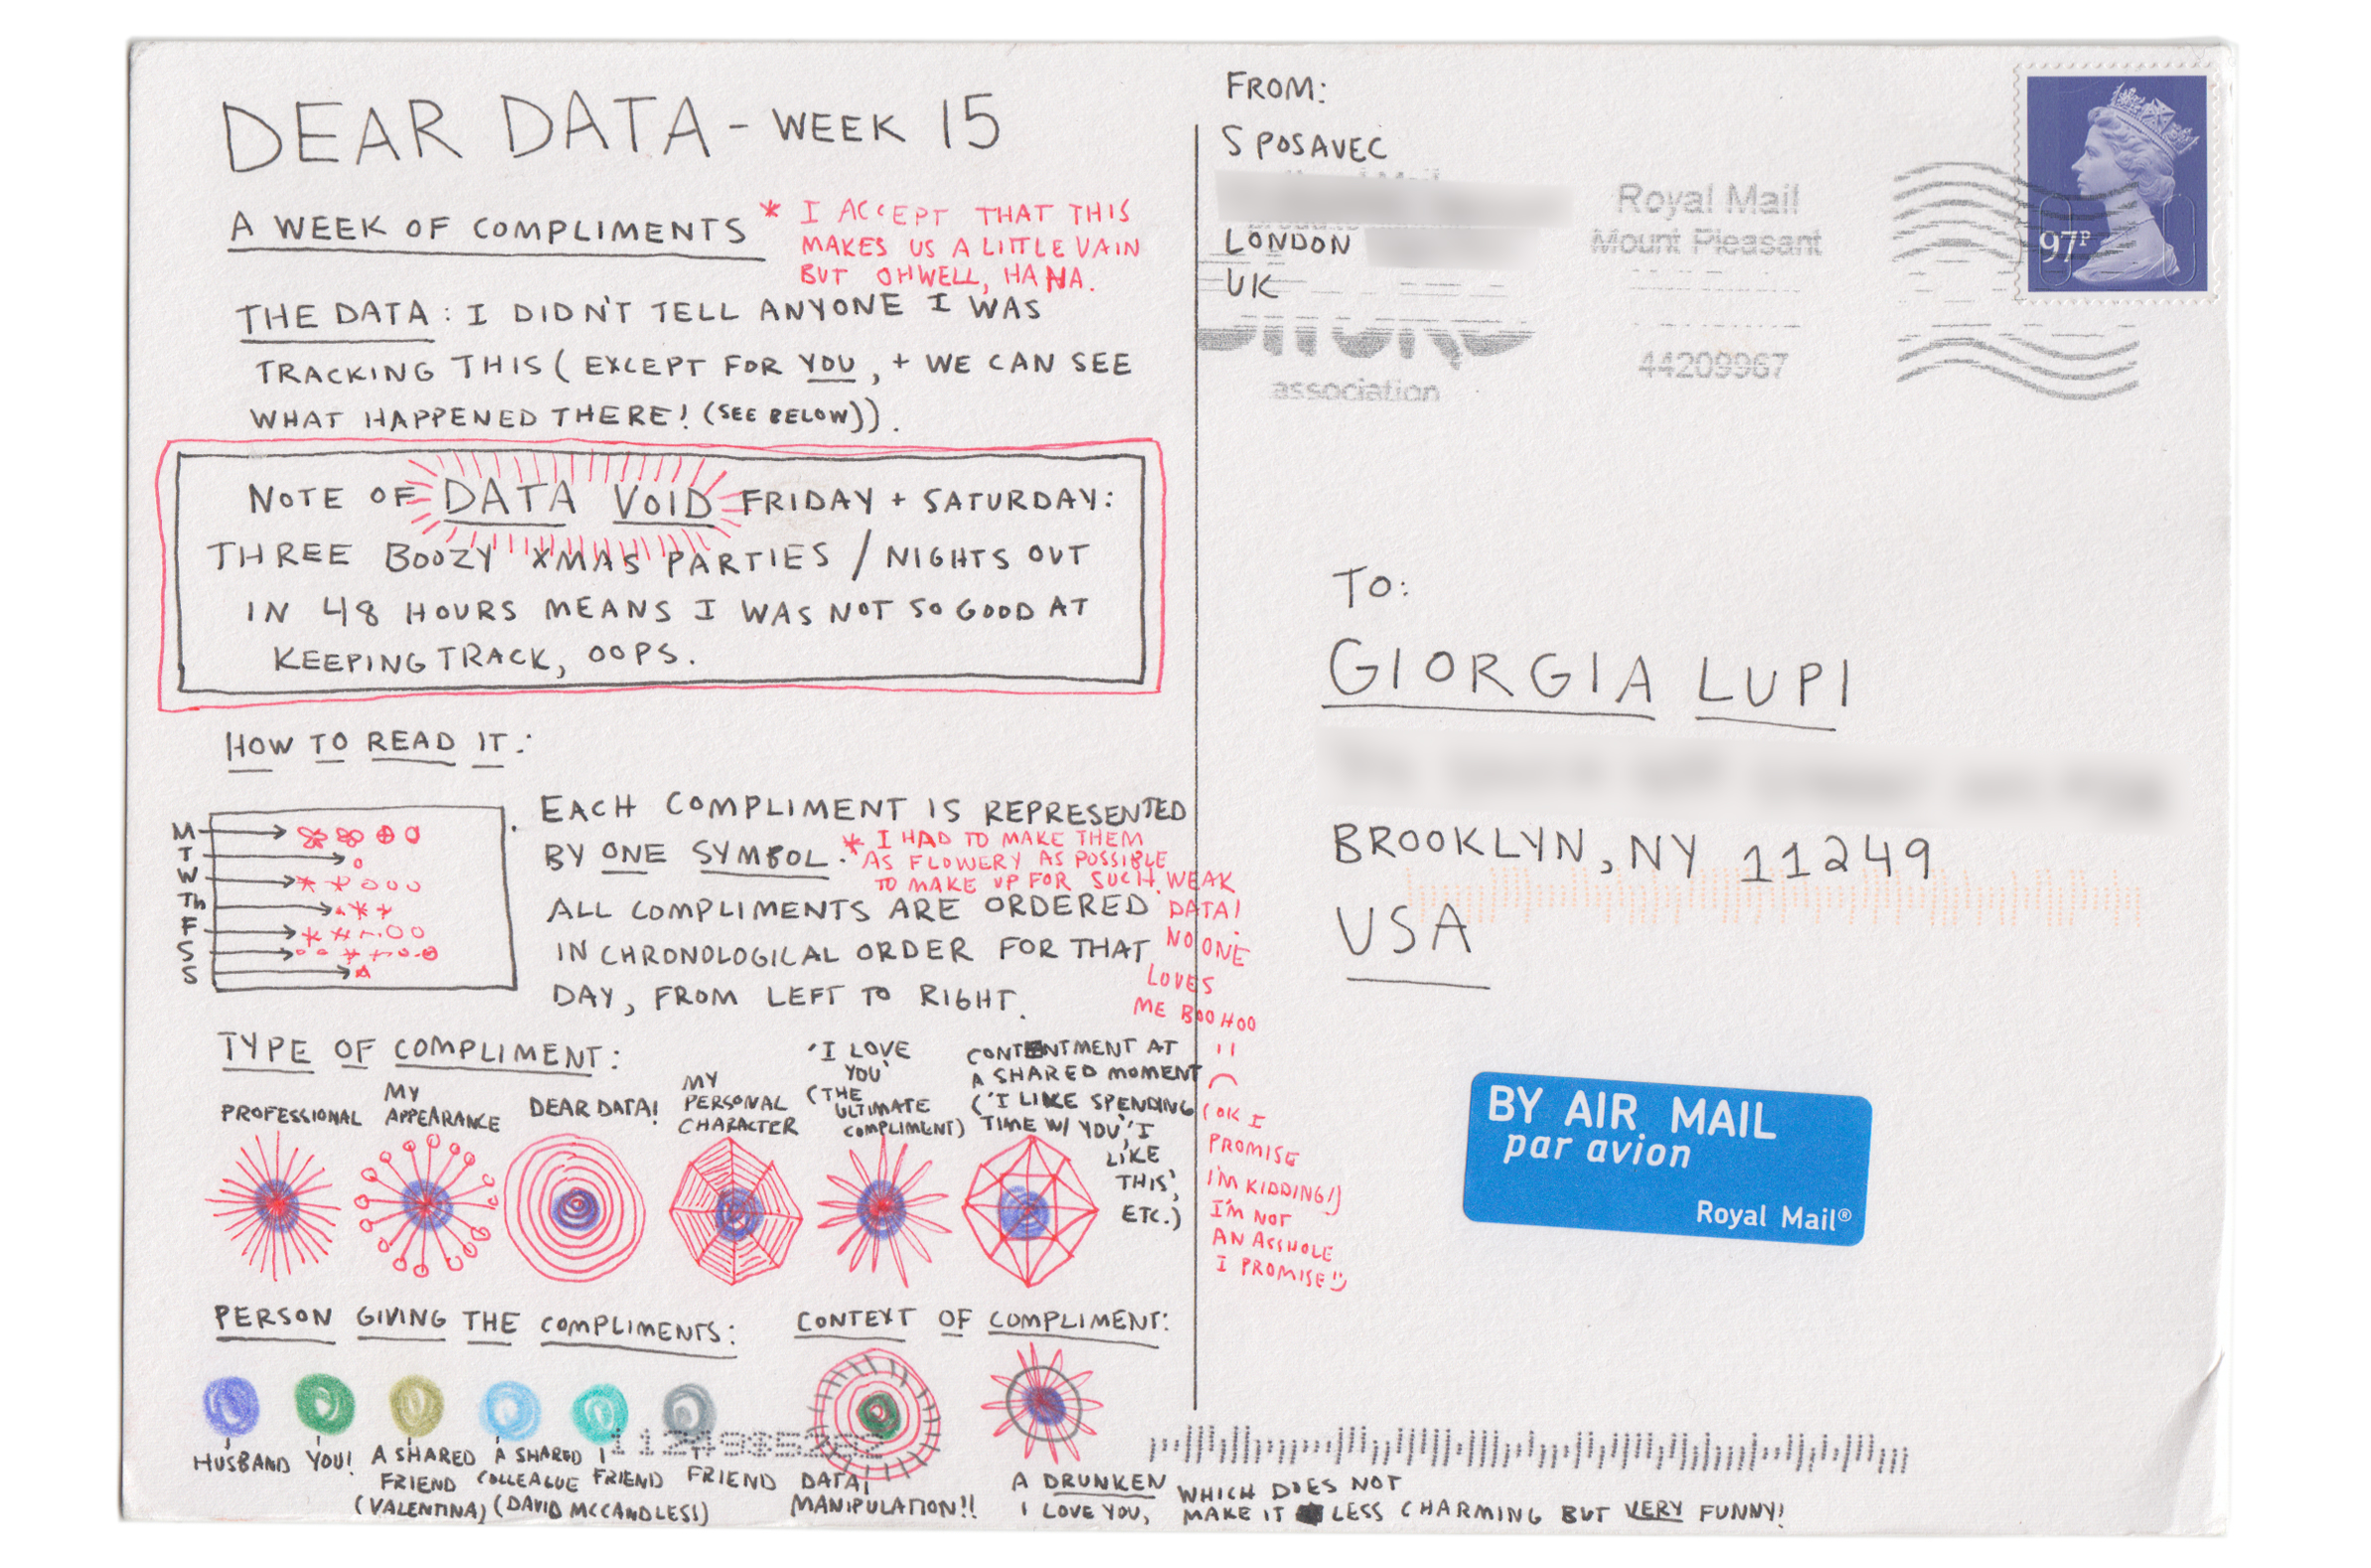 DEAR DATA - WEEK 15
A WEEK OF COMPLIMENTS
* I ACCEPT THAT THIS
MAKES US A LITTLE VAIN
BUT OHWELL, HA HA.
THE DATA: I DIDN'T TELL ANYONE I WAS
TRACKING THIS (EXCEPT FOR YOU, + WE CAN SEE
WHAT HAPPENED THERE! (SEE BELOW)).
NOTE OF DATA VOID FRIDAY + SATURDAY:
THREE BOOZY XMAS PARTIES / NIGHTS OUT
IN 48 HOURS MEANS I WAS NOT SO GOOD AT
KEEPING TRACK, OOPS.
HOW TO READ IT:
M
T
W
Th
F
S
S
EACH COMPLIMENT IS REPRESENTED
BY ONE SYMBOL.
* I HAD TO MAKE THEM
AS FLOWERY AS POSSIBLE
TO MAKE UP FOR SUCH WEAK
DATA!
NO ONE
LOVES
ME BOO HOO
(OK I
PROMISE
I'M KIDDING!)
I'M NOT
AN ASSHOLE
I PROMISE!
ALL COMPLIMENTS ARE ORDERED
IN CHRONOLOGICAL ORDER FOR THAT
DAY, FROM LEFT TO RIGHT.
TYPE OF COMPLIMENT:
PROFESSIONAL
MY
APPEARANCE
DEAR DATA!
MY
PERSONAL
CHARACTER
'I LOVE
YOU'
(THE
ULTIMATE
COMPLIMENT)
CONTENTMENT AT
A SHARED MOMENT
('I LIKE SPENDING
TIME W/ YOU', 'I
LIKE
THIS',
ETC.)
PERSON GIVING THE COMPLIMENTS:
HUSBAND
YOU!
A SHARED
FRIEND
(VALENTINA)
A SHARED
COLLEAGUE
(DAVID MCCANDLESS)
1
FRIEND
1
FRIEND
CONTEXT OF COMPLIMENT:
DATA
MANIPULATION!!
A DRUNKEN
I LOVE YOU,
WHICH DOES NOT
MAKE IT LESS CHARMING BUT VERY FUNNY!
FROM:
S POSAVEC
LONDON
UK
association
Royal Mail
Mount Pleasant
44209967
97P
TO:
GIORGIA LUPI
BROOKLYN, NY 11249
USA
BY AIR MAIL
par avion
Royal Mail®